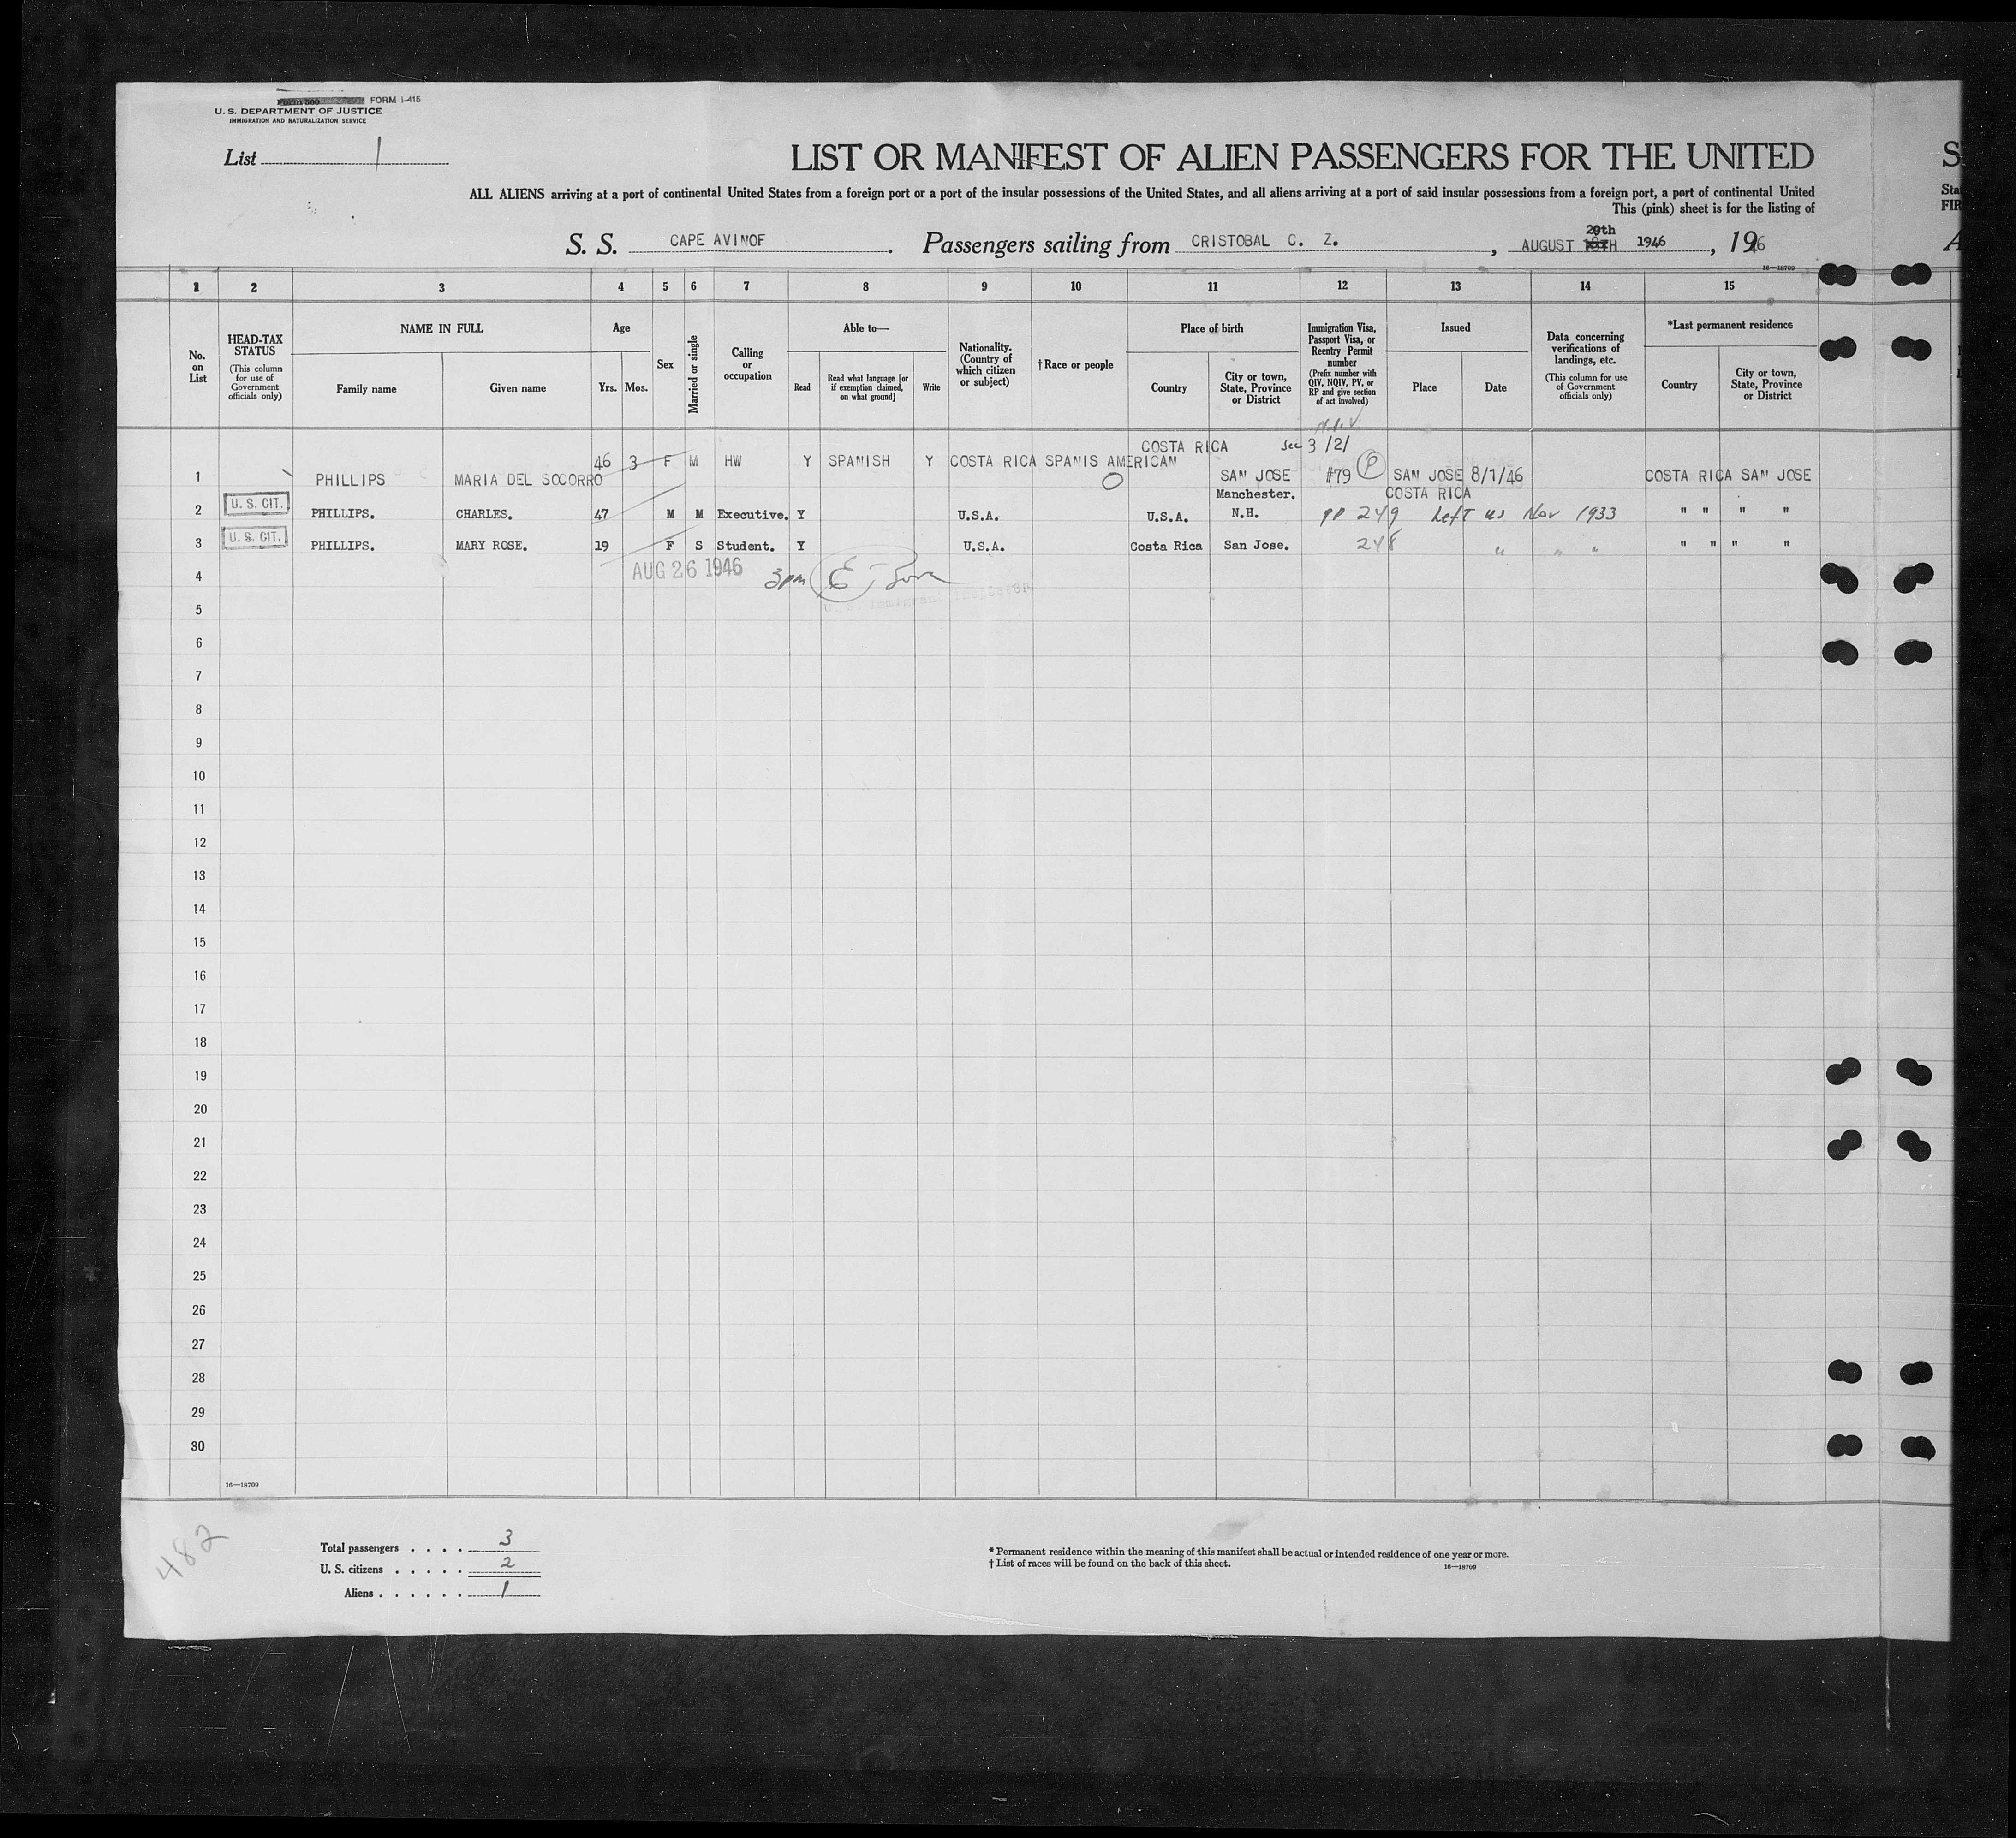 FORM I-415
U. S. DEPARTMENT OF JUSTICE
IMMIGRATION AND NATURALIZATION SERVICE
List 1
LIST OR MANIFEST OF ALIEN PASSENGERS FOR THE UNITED
S
ALL ALIENS arriving at a port of continental United States from a foreign port or a port of the insular possessions of the United States, and all aliens arriving at a port of said insular possessions from a foreign port, a port of continental United
Sta
This (pink) sheet is for the listing of
FIR
S. S. CAPE AVINOF . Passengers sailing from CRISTOBAL C. Z. , AUGUST 20th 1946 , 1946
A
16—18709
1 2 3 4 5 6 7 8 9 10 11 12 13 14 15
No. on List
HEAD-TAX STATUS
(This column for use of Government officials only)
NAME IN FULL
Family name
Given name
Age
Yrs. Mos.
Sex
Married or single
Calling or occupation
Able to—
Read
Read what language [or if exemption claimed, on what ground]
Write
Nationality. (Country of which citizen or subject)
†Race or people
Place of birth
Country
City or town, State, Province or District
Immigration Visa, Passport Visa, or Reentry Permit number
(Prefix number with QIV, NQIV, PV, or RP and give section of act involved)
Issued
Place
Date
Data concerning verifications of landings, etc.
(This column for use of Government officials only)
*Last permanent residence
Country
City or town, State, Province or District
COSTA RICA Sec 3 /2/
46 3 F M HW Y SPANISH Y COSTA RICA SPANIS AMERICAN
1 PHILLIPS MARIA DEL SOCORRO SAN JOSE #79 P SAN JOSE 8/1/46 COSTA RICA SAN JOSE
Manchester. COSTA RICA
2 U. S. CIT. PHILLIPS. CHARLES. 47 M M Executive. Y U.S.A. U.S.A. N.H. PP 249 Left US Nov 1933 " " " "
3 U. S. CIT. PHILLIPS. MARY ROSE. 19 F S Student. Y U.S.A. Costa Rica San Jose. 248 " " " " " " "
4 AUG 26 1946 3pm
5 U. S. Immigrant Inspector
6
7
8
9
10
11
12
13
14
15
16
17
18
19
20
21
22
23
24
25
26
27
28
29
30
16—18709
482
Total passengers . . . . 3
U. S. citizens . . . . . 2
Aliens . . . . . . 1
* Permanent residence within the meaning of this manifest shall be actual or intended residence of one year or more.
† List of races will be found on the back of this sheet.
16—18709